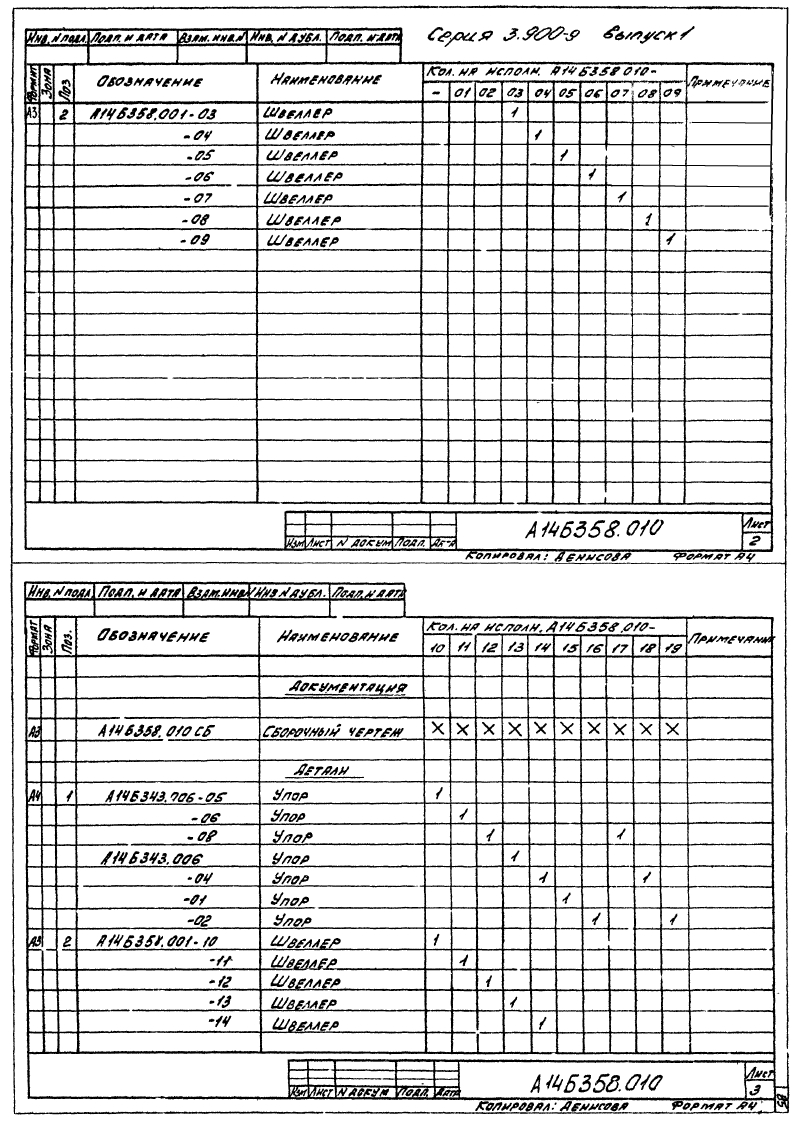 Серия 3.900-9 выпуск 1
Инв. N подл. Подп. и дата Взам. инв. N Инв. N дубл. Подп. и дата
Формат Зона Поз Обозначение Наименование Кол. на исполн. А14Б358.010- Примечание
- 01 02 03 04 05 06 07 08 09
А3 2 А14Б358.001-03 Швеллер 1
-04 Швеллер 1
-05 Швеллер 1
-06 Швеллер 1
-07 Швеллер 1
-08 Швеллер 1
-09 Швеллер 1
А14Б358.010 Лист
Изм Лист N докум Подп. Дата 2
Копировал: Денисова Формат А4
Инв. N подл Подп. и дата Взам. инв N Инв N дубл. Подп. и дата
Формат Зона Поз. Обозначение Наименование Кол. на исполн. А14Б358.010- Примечание
10 11 12 13 14 15 16 17 18 19
Документация
А3 А14Б358.010 СБ Сборочный чертеж X X X X X X X X X X
Детали
А4 1 А14Б343.706-05 Упор 1
-06 Упор 1
-08 Упор 1 1
А14Б343.006 Упор 1
-04 Упор 1 1
-01 Упор 1
-02 Упор 1 1
А3 2 А14Б358.001-10 Швеллер 1
-11 Швеллер 1
-12 Швеллер 1
-13 Швеллер 1
-14 Швеллер 1
А14Б358.010 Лист
Изм Лист N докум Подп. Дата 3
Копировал: Денисова Формат А4